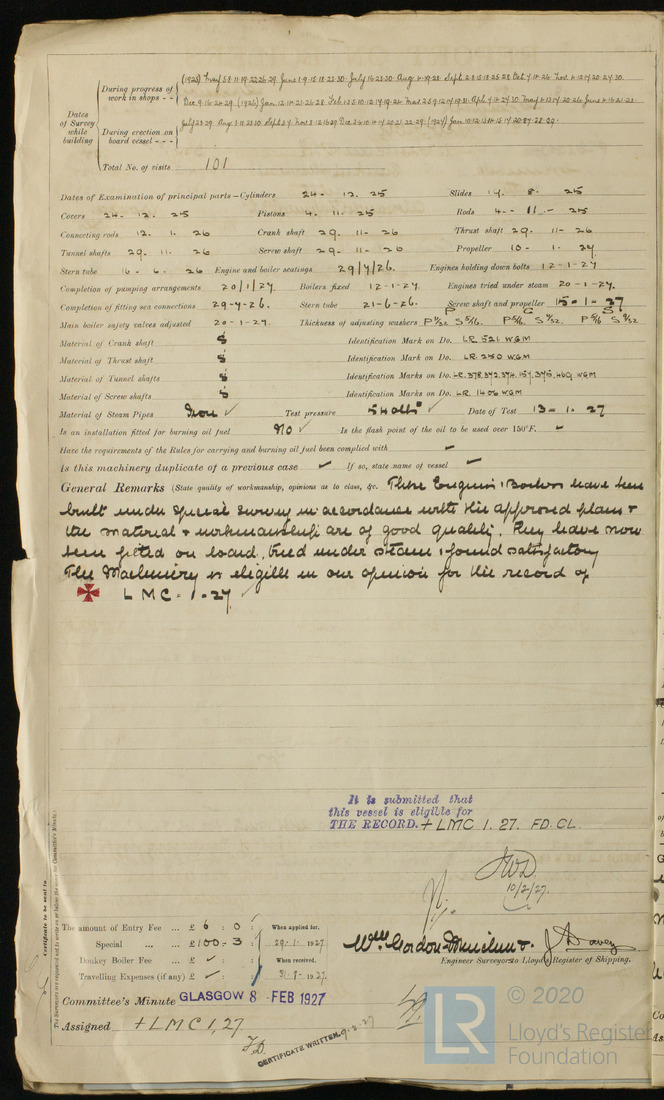 During progress of work in shops - -
(1925) May 5.8.11.19.22.26.29. June 1.9.15.18.23.30. July 16.23.30. Aug 4.19.28. Sept 2.8.15.18.25.28 Oct 7.19.26 Nov. 4.12.17.20.24.30.
Dec. 9.16.24.29. (1926) Jan.
Dates of Survey while building
During erection on board vessel - - -
Total No. of visits 101
Dates of Examination of principal parts—Cylinders 24 - 12. 25 Slides 14. 8. 25
Covers 24. 12. 25 Pistons 4. 11. 25 Rods 4 - 11 - 25
Connecting rods 12. 1. 26 Crank shaft 29. 11 - 26 Thrust shaft 29. 11 - 26
Tunnel shafts 29. 11. 26 Screw shaft 29 - 11 - 26 Propeller 10 - 1. 27
Stern tube 16 - 6. 26 Engine and boiler seatings 29/4/26. Engines holding down bolts 12-1-27
Completion of pumping arrangements 20/1/27 Boilers fixed 12-1-27. Engines tried under steam 20-1-27.
Completion of fitting sea connections 29-4-26. Stern tube 21-6-26. Screw shaft and propeller 15-1-27
Main boiler safety valves adjusted 20-1-27. Thickness of adjusting washers P 11/32 S 5/16. P 5/16. S 9/32. P 5/16 S 9/32.
Material of Crank shaft S Identification Mark on Do. LR 521 WGM
Material of Thrust shaft S Identification Mark on Do. LR 250 WGM
Material of Tunnel shafts S Identification Marks on Do. LR. 378.372.374.157.375.469 WGM
Material of Screw shafts S Identification Marks on Do. LR 1406 WGM
Material of Steam Pipes Iron ✓ Test pressure 540 lbs ✓ Date of Test 13 - 1. 27
Is an installation fitted for burning oil fuel No ✓ Is the flash point of the oil to be used over 150°F. ✓
Have the requirements of the Rules for carrying and burning oil fuel been complied with ✓
Is this machinery duplicate of a previous case ✓ If so, state name of vessel ✓
General Remarks (State quality of workmanship, opinions as to class, &c. These Engines & Boilers have been
built under special survey in accordance with the approved plans &
the material & workmanship are of good quality. They have now
been fitted on board, tried under steam & found satisfactory
The Machinery is eligible in our opinion for the record of
✠ LMC - 1 - 27.
It is submitted that
this vessel is eligible for
THE RECORD. + LMC 1. 27. FD. CL.
10/2/27.
Certificate to be sent to
The amount of Entry Fee ... £ 6 : 0 : When applied for,
Special ... ... £ 100 : 3 : 29.1.1927
Donkey Boiler Fee ... £ ✓ : When received,
Travelling Expenses (if any) £ ✓ :
Wm Gordon-Maclean & J. Davey
Engineer Surveyors to Lloyd's Register of Shipping.
Committee's Minute GLASGOW 8 - FEB 1927
Assigned + LMC 1,27.
F.D.
CERTIFICATE WRITTEN 9-2-27
LR
© 2020
Lloyd's Register
Foundation